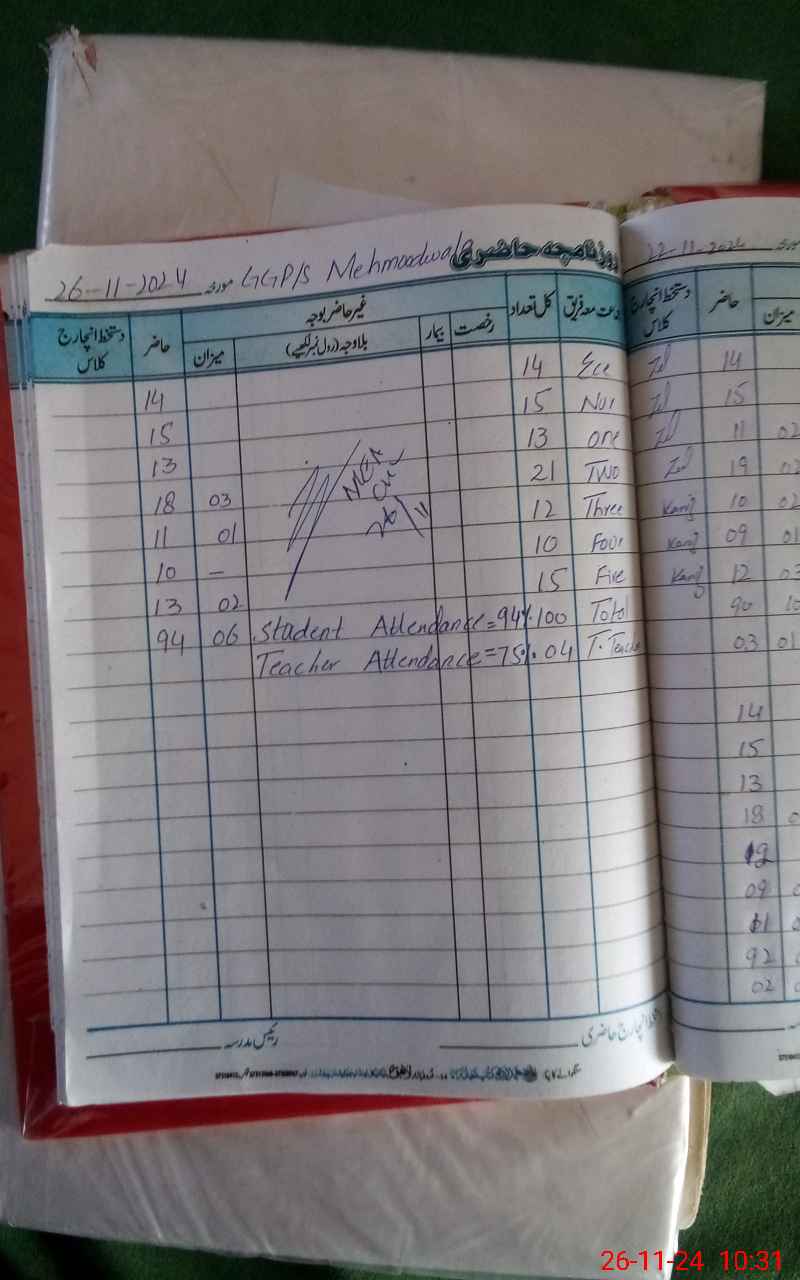 روزنامچہ حاضری
26-11-2024 مورخہ GGP/S Mehmoodwala
جماعت معہ فریق کل تعداد غیر حاضر بوجہ حاضر دستخط انچارج کلاس
رخصت بیمار بلاوجہ (رول نمبر لکھیے) میزان
Ece 14 14
Nur 15 15
one 13 13
Two 21 03 18
Three 12 01 11
Four 10 – 10
Five 15 02 13
Total 100 Student Attendance=94% 06 94
T.Teache 04 Teacher Attendance=75%
MEA
26/11
دستخط انچارج حاضری
رئیس مدرسہ
22-11-2024 مورخہ
میزان حاضر دستخط انچارج کلاس
14
15
02 11
02 19
02 10 Kanij
01 09 Kanij
03 12 Kanij
10 90
01 03
14
15
13
18
12
09
11
92
02
26-11-24 10:31